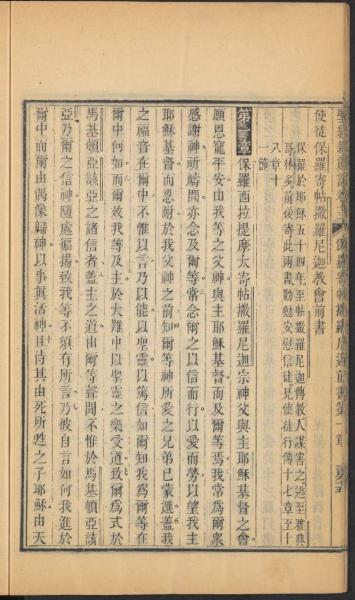 使徒保羅寄帖撒羅尼迦教會前書
保羅於耶穌五十四年至帖撒羅尼迦傳教人謀害之逃至雅典
哥林多前後寄此兩書勸勉安慰信徒見使徒行傳十七章至十
八章十
一節
第壹章保羅西拉提摩太寄帖撒羅尼迦宗神父與主耶穌基督之會
願恩寵平安由我等之父神與主耶穌基督而及爾等焉我常爲爾衆
感謝神祈禱間亦念及爾等常念爾之以信而行以愛而勞以望我主
耶穌基督而忍耐於我父神之前知爾等神所愛之兄弟已蒙選蓋我
之福音在爾中不惟以言乃以能以聖靈以篤信如爾知我爲爾等在
爾中何如而爾效我等及主於大難中以聖靈之樂受道致爾爲式於
馬基頓亞該亞之諸信者蓋主之道由爾等聲聞不惟於馬基頓亞該
亞乃爾之信神隨處徧揚致我等不須有所言乃彼自言如何我進於
爾中而爾由偶像歸神以事眞活神且待其由死所甦之子耶穌由天